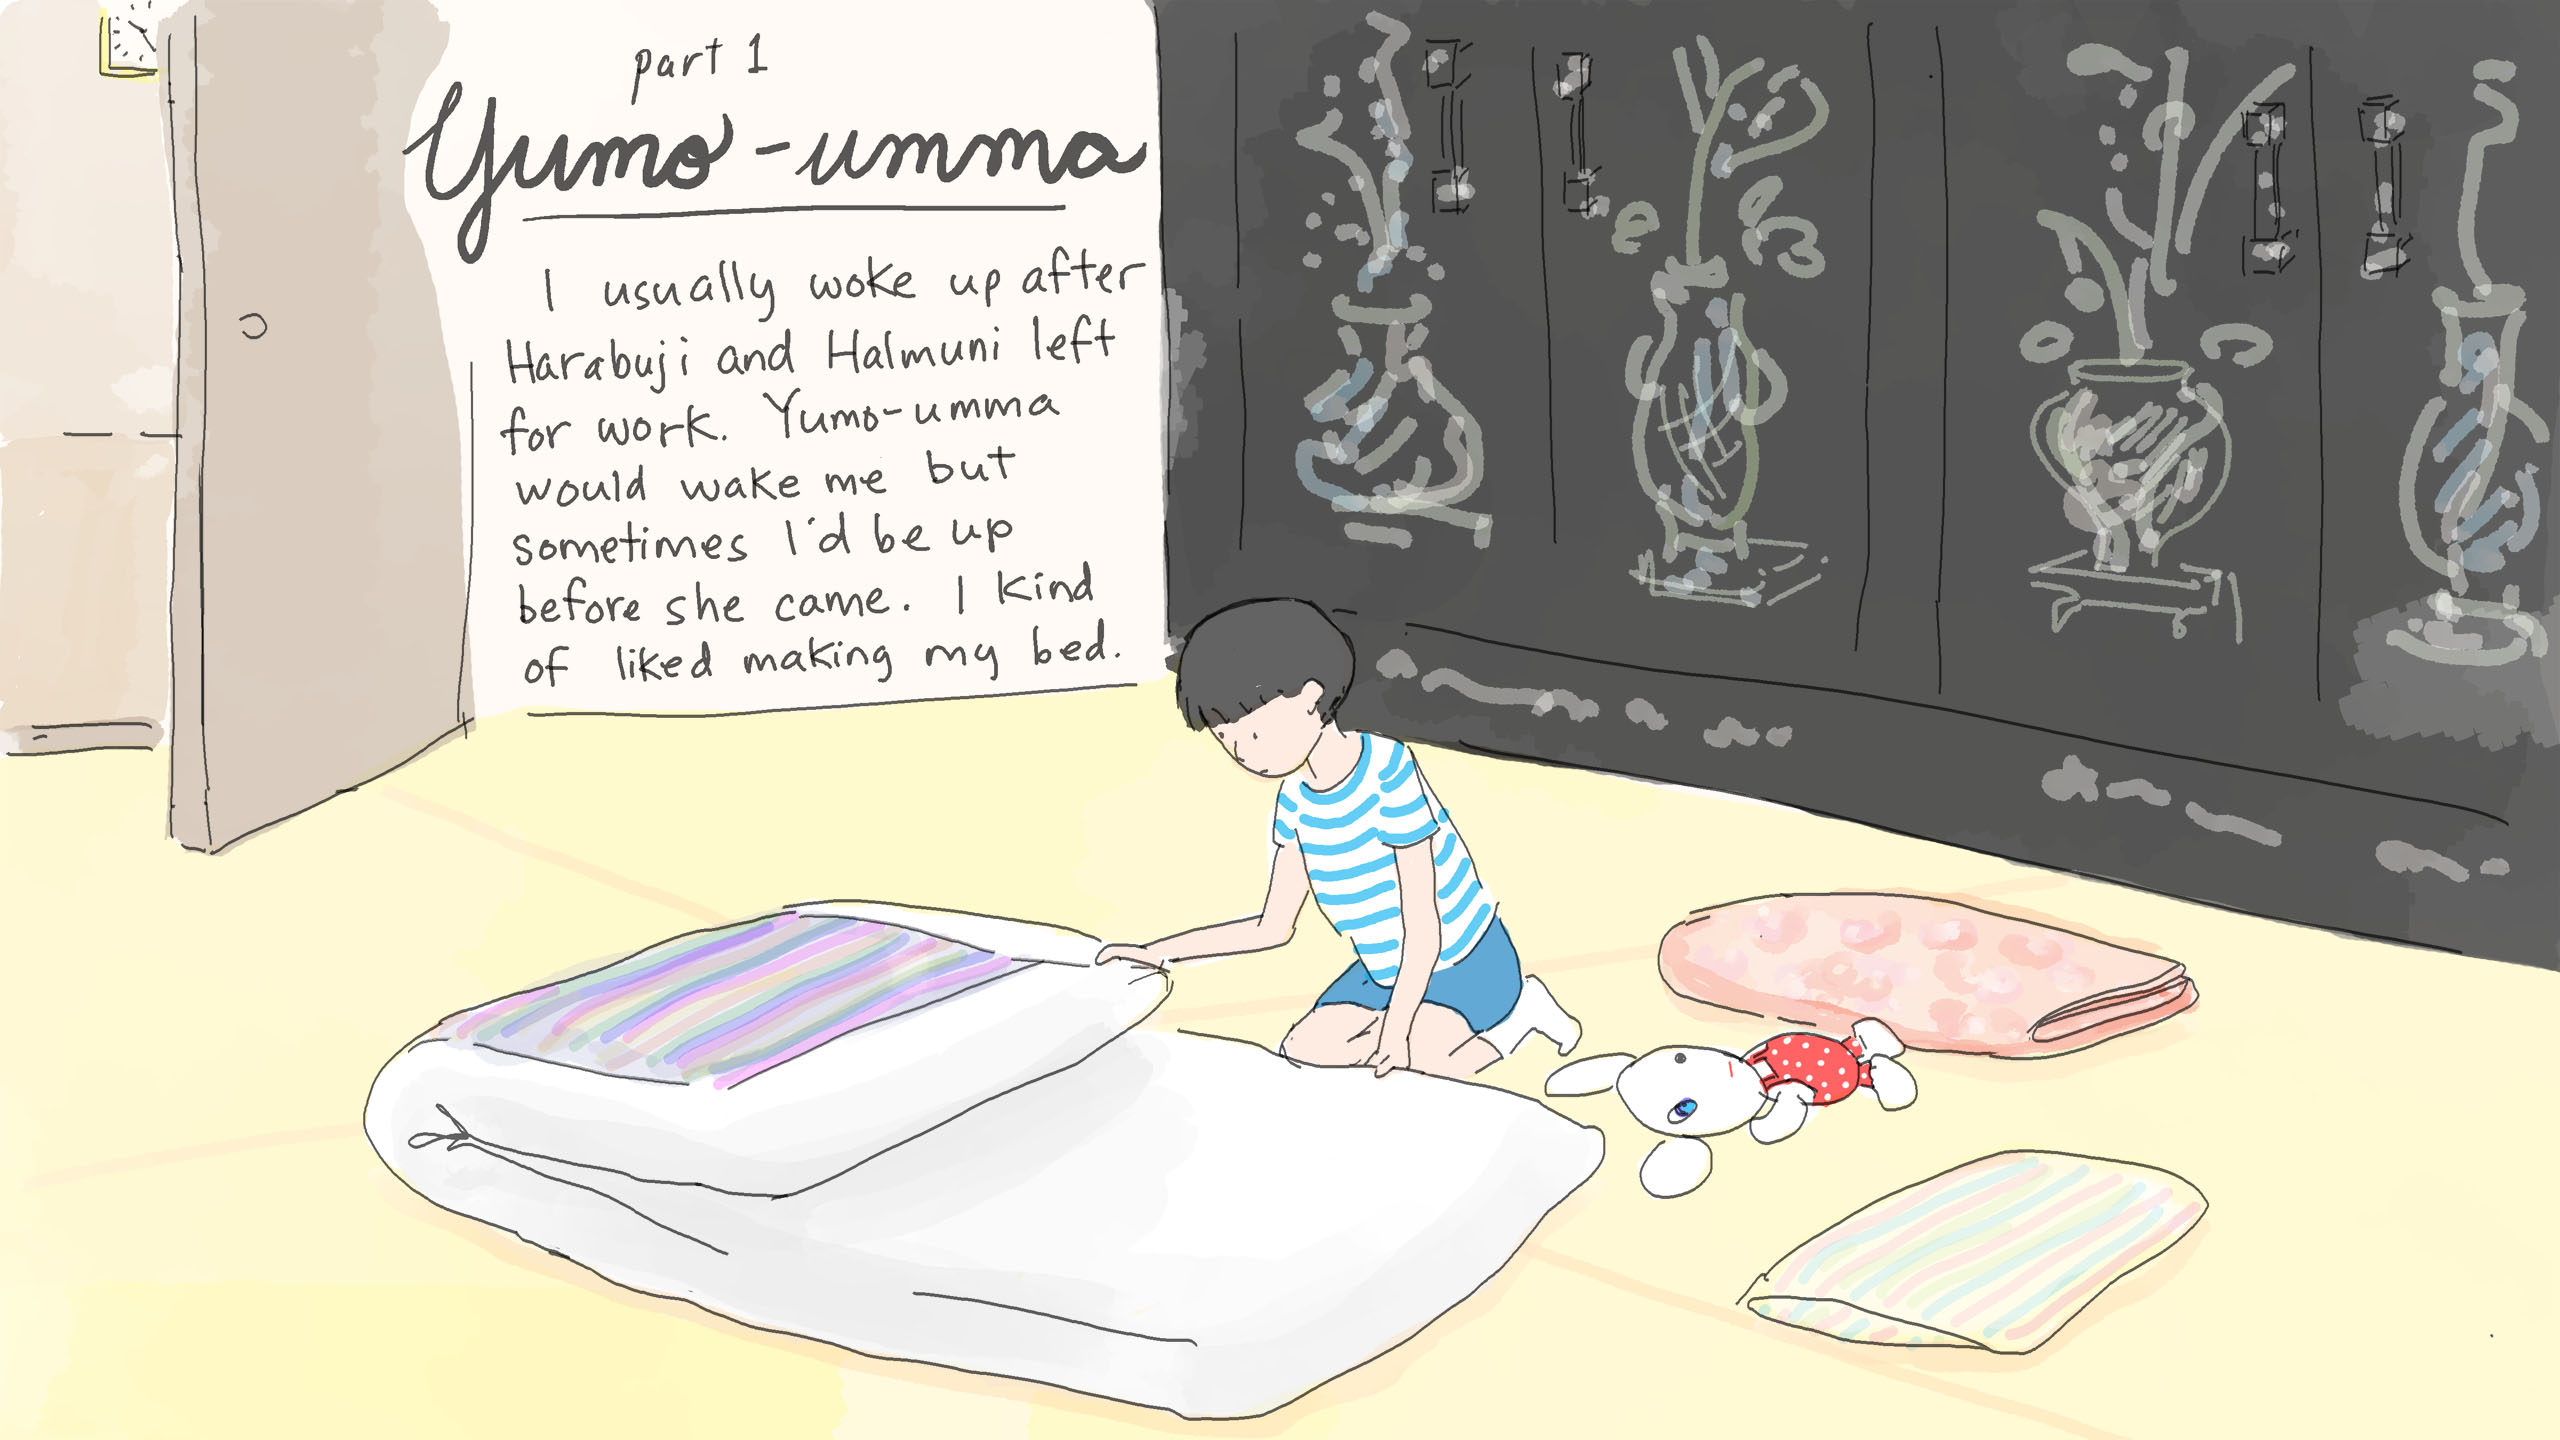 part 1
Yumo-umma
I usually woke up after
Harabuji and Halmuni left
for work. Yumo-umma
would wake me but
sometimes I'd be up
before she came. I kind
of liked making my bed.